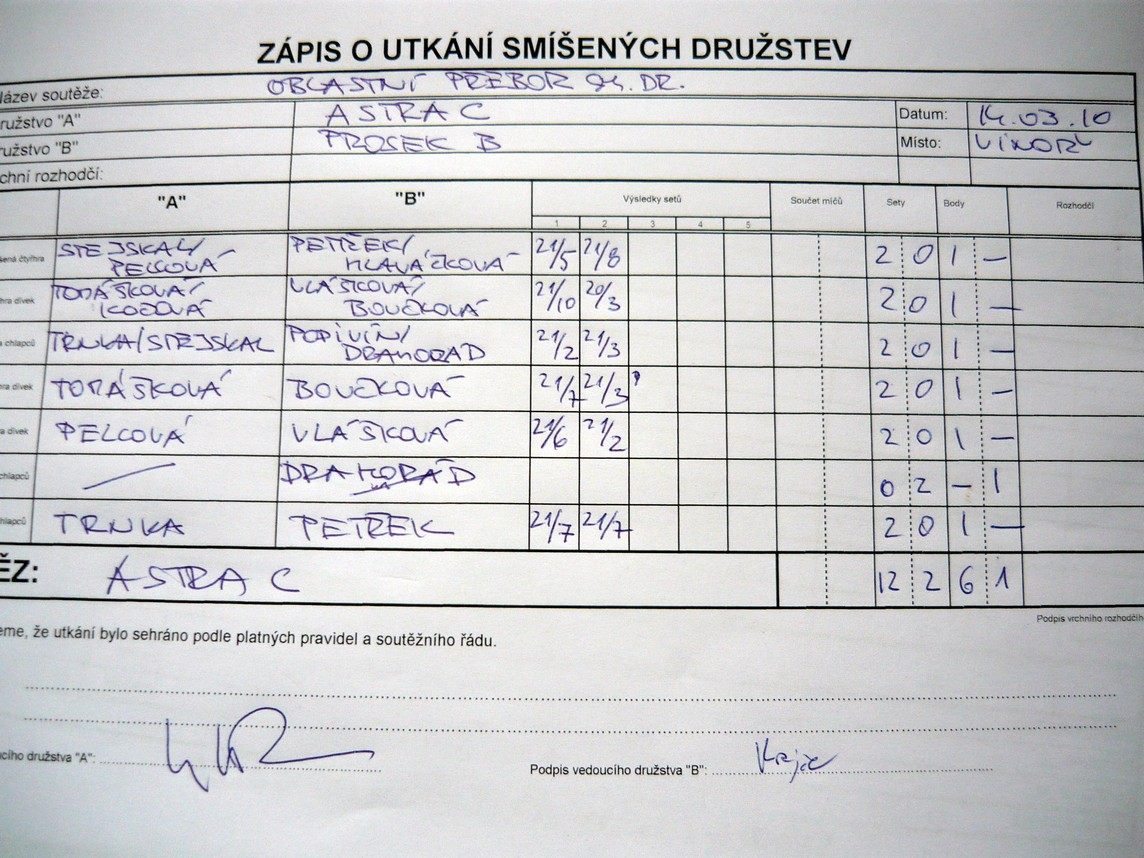 ZÁPIS O UTKÁNÍ SMÍŠENÝCH DRUŽSTEV
lázev soutěže: OBLASTNÍ PŘEBOR SM. DR.
ružstvo "A" ASTRA C Datum: 14.03.10
ružstvo "B" PROSEK B Místo: VINOŘ
chní rozhodčí:
"A" "B" Výsledky setů Součet míčů Sety Body Rozhodčí
1 2 3 4 5
šená čtyřhra STEJSKAL/ PELCOVÁ PETŘEK/ HLAVÁČKOVÁ 21/5 21/8 2 0 1 –
hra dívek TOMÁŠKOVÁ/ KOZOVÁ VLÁŠKOVÁ/ BOUČKOVÁ 21/10 20/3 2 0 1 –
a chlapců TRNKA/STEJSKAL POPIVIŇ/ DRAHORÁD 21/2 21/3 2 0 1 –
hra dívek TOMÁŠKOVÁ BOUČKOVÁ 21/7 21/3 2 0 1 –
a dívek PELCOVÁ VLÁŠKOVÁ 21/6 21/2 2 0 1 –
chlapců — DRAHORÁD 0 2 – 1
hlapců TRNKA PETŘEK 21/7 21/7 2 0 1 –
ĚZ: ASTRA C 12 2 6 1
Podpis vrchního rozhodčího
eme, že utkání bylo sehráno podle platných pravidel a soutěžního řádu.
ucího družstva "A":
Podpis vedoucího družstva "B":